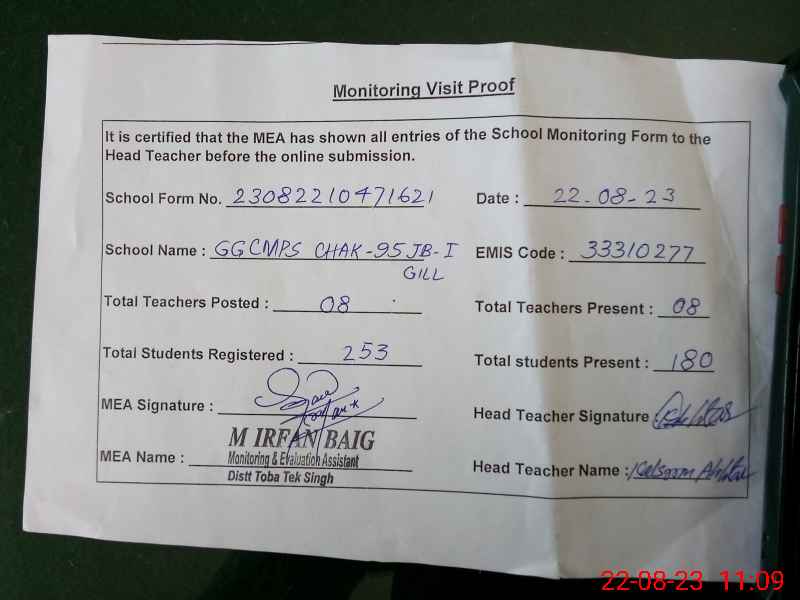 Monitoring Visit Proof
It is certified that the MEA has shown all entries of the School Monitoring Form to the
Head Teacher before the online submission.
School Form No. 23082210471621 Date : 22-08-23
School Name : GGCMPS CHAK-95JB-I EMIS Code : 33310277
GILL
Total Teachers Posted : 08 Total Teachers Present : 08
Total Students Registered : 253 Total students Present : 180
MEA Signature : Head Teacher Signature
M IRFAN BAIG
MEA Name : Monitoring & Evaluation Assistant Head Teacher Name : Kalsoom
Distt Toba Tek Singh
22-08-23 11:09